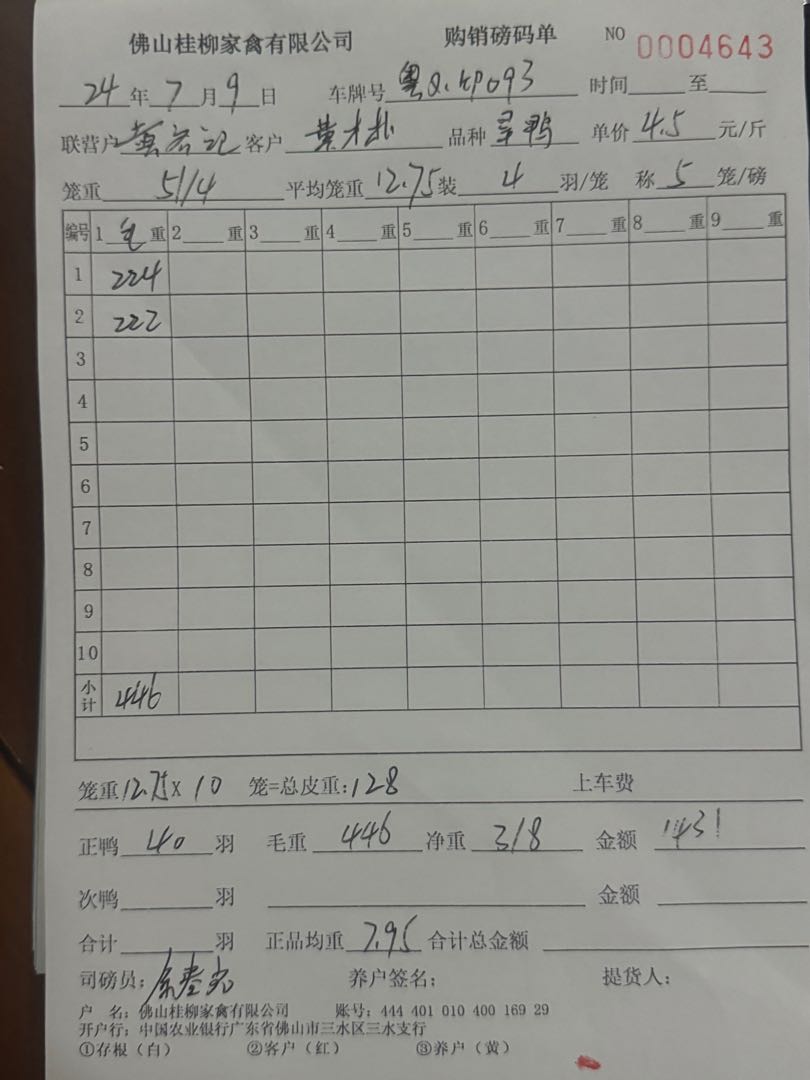 佛山桂柳家禽有限公司 购销磅码单 NO 0004643
24年7月9日 车牌号 粤Q. 093 时间 至
联营户 客户 黄 品种 鸭 单价 4.5 元/斤
笼重 51/4 平均笼重 12.75 装 4 羽/笼 称 5 笼/磅
编号 1 毛 重 2 重 3 重 4 重 5 重 6 重 7 重 8 重 9 重
1 224
2 222
3
4
5
6
7
8
9
10
小计 446
笼重 12.75 X 10 笼=总皮重: 128 上车费
正鸭 40 羽 毛重 446 净重 318 金额 1431
次鸭 羽 金额
合计 羽 正品均重 7.95 合计总金额
司磅员: 养户签名: 提货人:
户 名: 佛山桂柳家禽有限公司 账号: 444 401 010 400 169 29
开户行: 中国农业银行广东省佛山市三水区三水支行
①存根(白) ②客户(红) ③养户(黄)